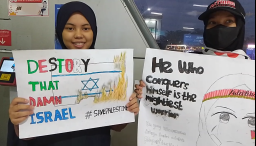 DESTORY
THAT
DAMN
ISRAEL
#SAVEPALESTINE
He Who
Conquers
himself is the
mightiest
warrior